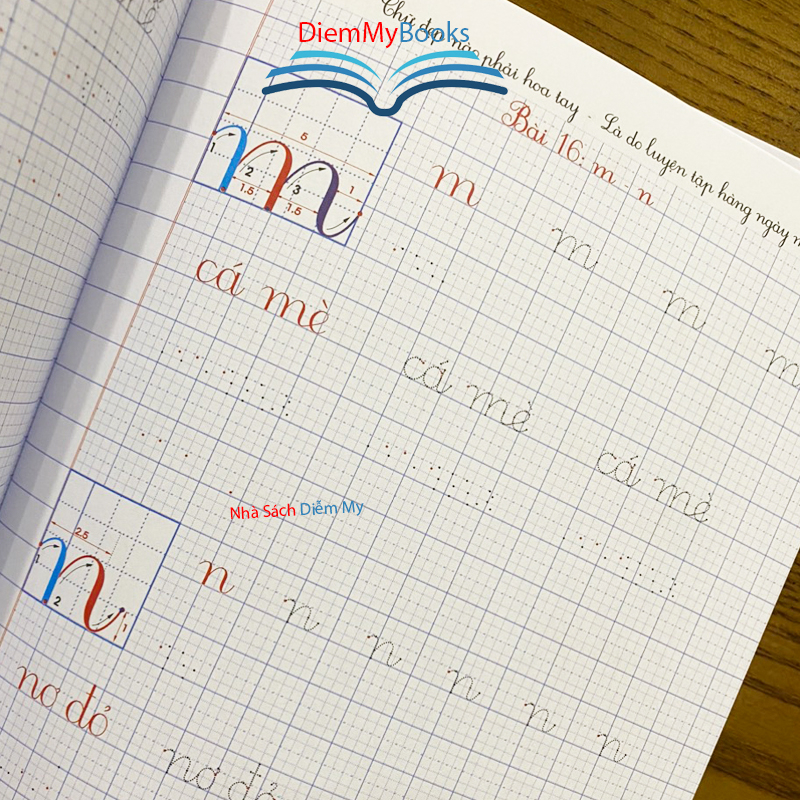 DiemMyBooks
Chữ đẹp nào phải hoa tay - Là do luyện tập hàng ngày
Bài 16: m - n
5
1 2 3 1
1.5 1.5
m m m m
cá mè cá mè cá mè
Nhà Sách Diễm My
2.5
1 2 1
n n n n n n
nơ đỏ nơ đỏ